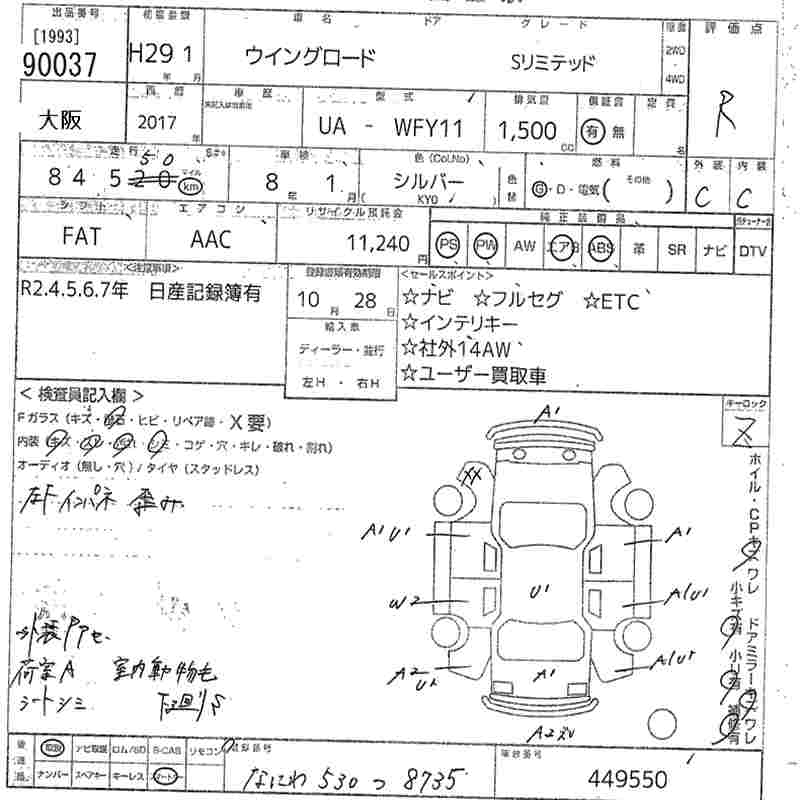 出品番号 初度登録 車名 ドア グレード 評価点
[1993]
90037
H29 1
年 月
ウイングロード
Sリミテッド
2WD
4WD
R
西暦 車歴 型式 排気量 保証書 定員
大阪
2017
年
UA - WFY11
1,500
CC
有 無
名
走行 車検 色 (Col.No) 燃料 外装 内装
50
84520
マイル
km
8 1
年 月
シルバー
KYO
色替
G・D・電気 (その他 )
C C
シフト エアコン リサイクル預託金 純正装備品
FAT
AAC
11,240
円
PS PW AW エアB ABS 革 SR ナビ DTV
<注意事項>
登録書類有効期限
<セールスポイント>
R2.4.5.6.7年 日産記録簿有
10 28
月 日
☆ナビ ☆フルセグ ☆ETC
輸入車
☆インテリキー
ディーラー・並行
☆社外14AW
左H・右H
☆ユーザー買取車
<検査員記入欄>
キーロック
Fガラス (キズ・飛石・ヒビ・リペア跡・X要)
内装 (キズ・スレ・汚れ・シミ・コゲ・穴・キレ・破れ・割れ)
オーディオ (無し・穴) / タイヤ (スタッドレス)
左F インパネ 歪み
A1
XX
A1 U1
A1
W2
U1
A1U1
A2
A1
A1U1
A2ズレ
ホイル・CPキズワレ
ドアミラーキズワレ
小キズ有 小U有 補修有
荷室A 室内動物毛
シートシミ 下廻りS
後送品
取説 ナビ取説 ロム/SD B-CAS リモコン
ナンバー スペアキー キーレス スマートキー
登録番号
なにわ 530 つ 8735
車台番号
449550